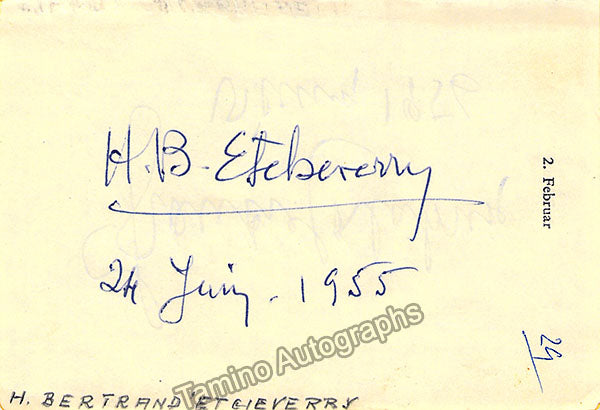 H. B. Etcheverry
24 Juin. 1955
2. Februar
29
H. BERTRAND ETCHEVERRY
Tamino Autographs